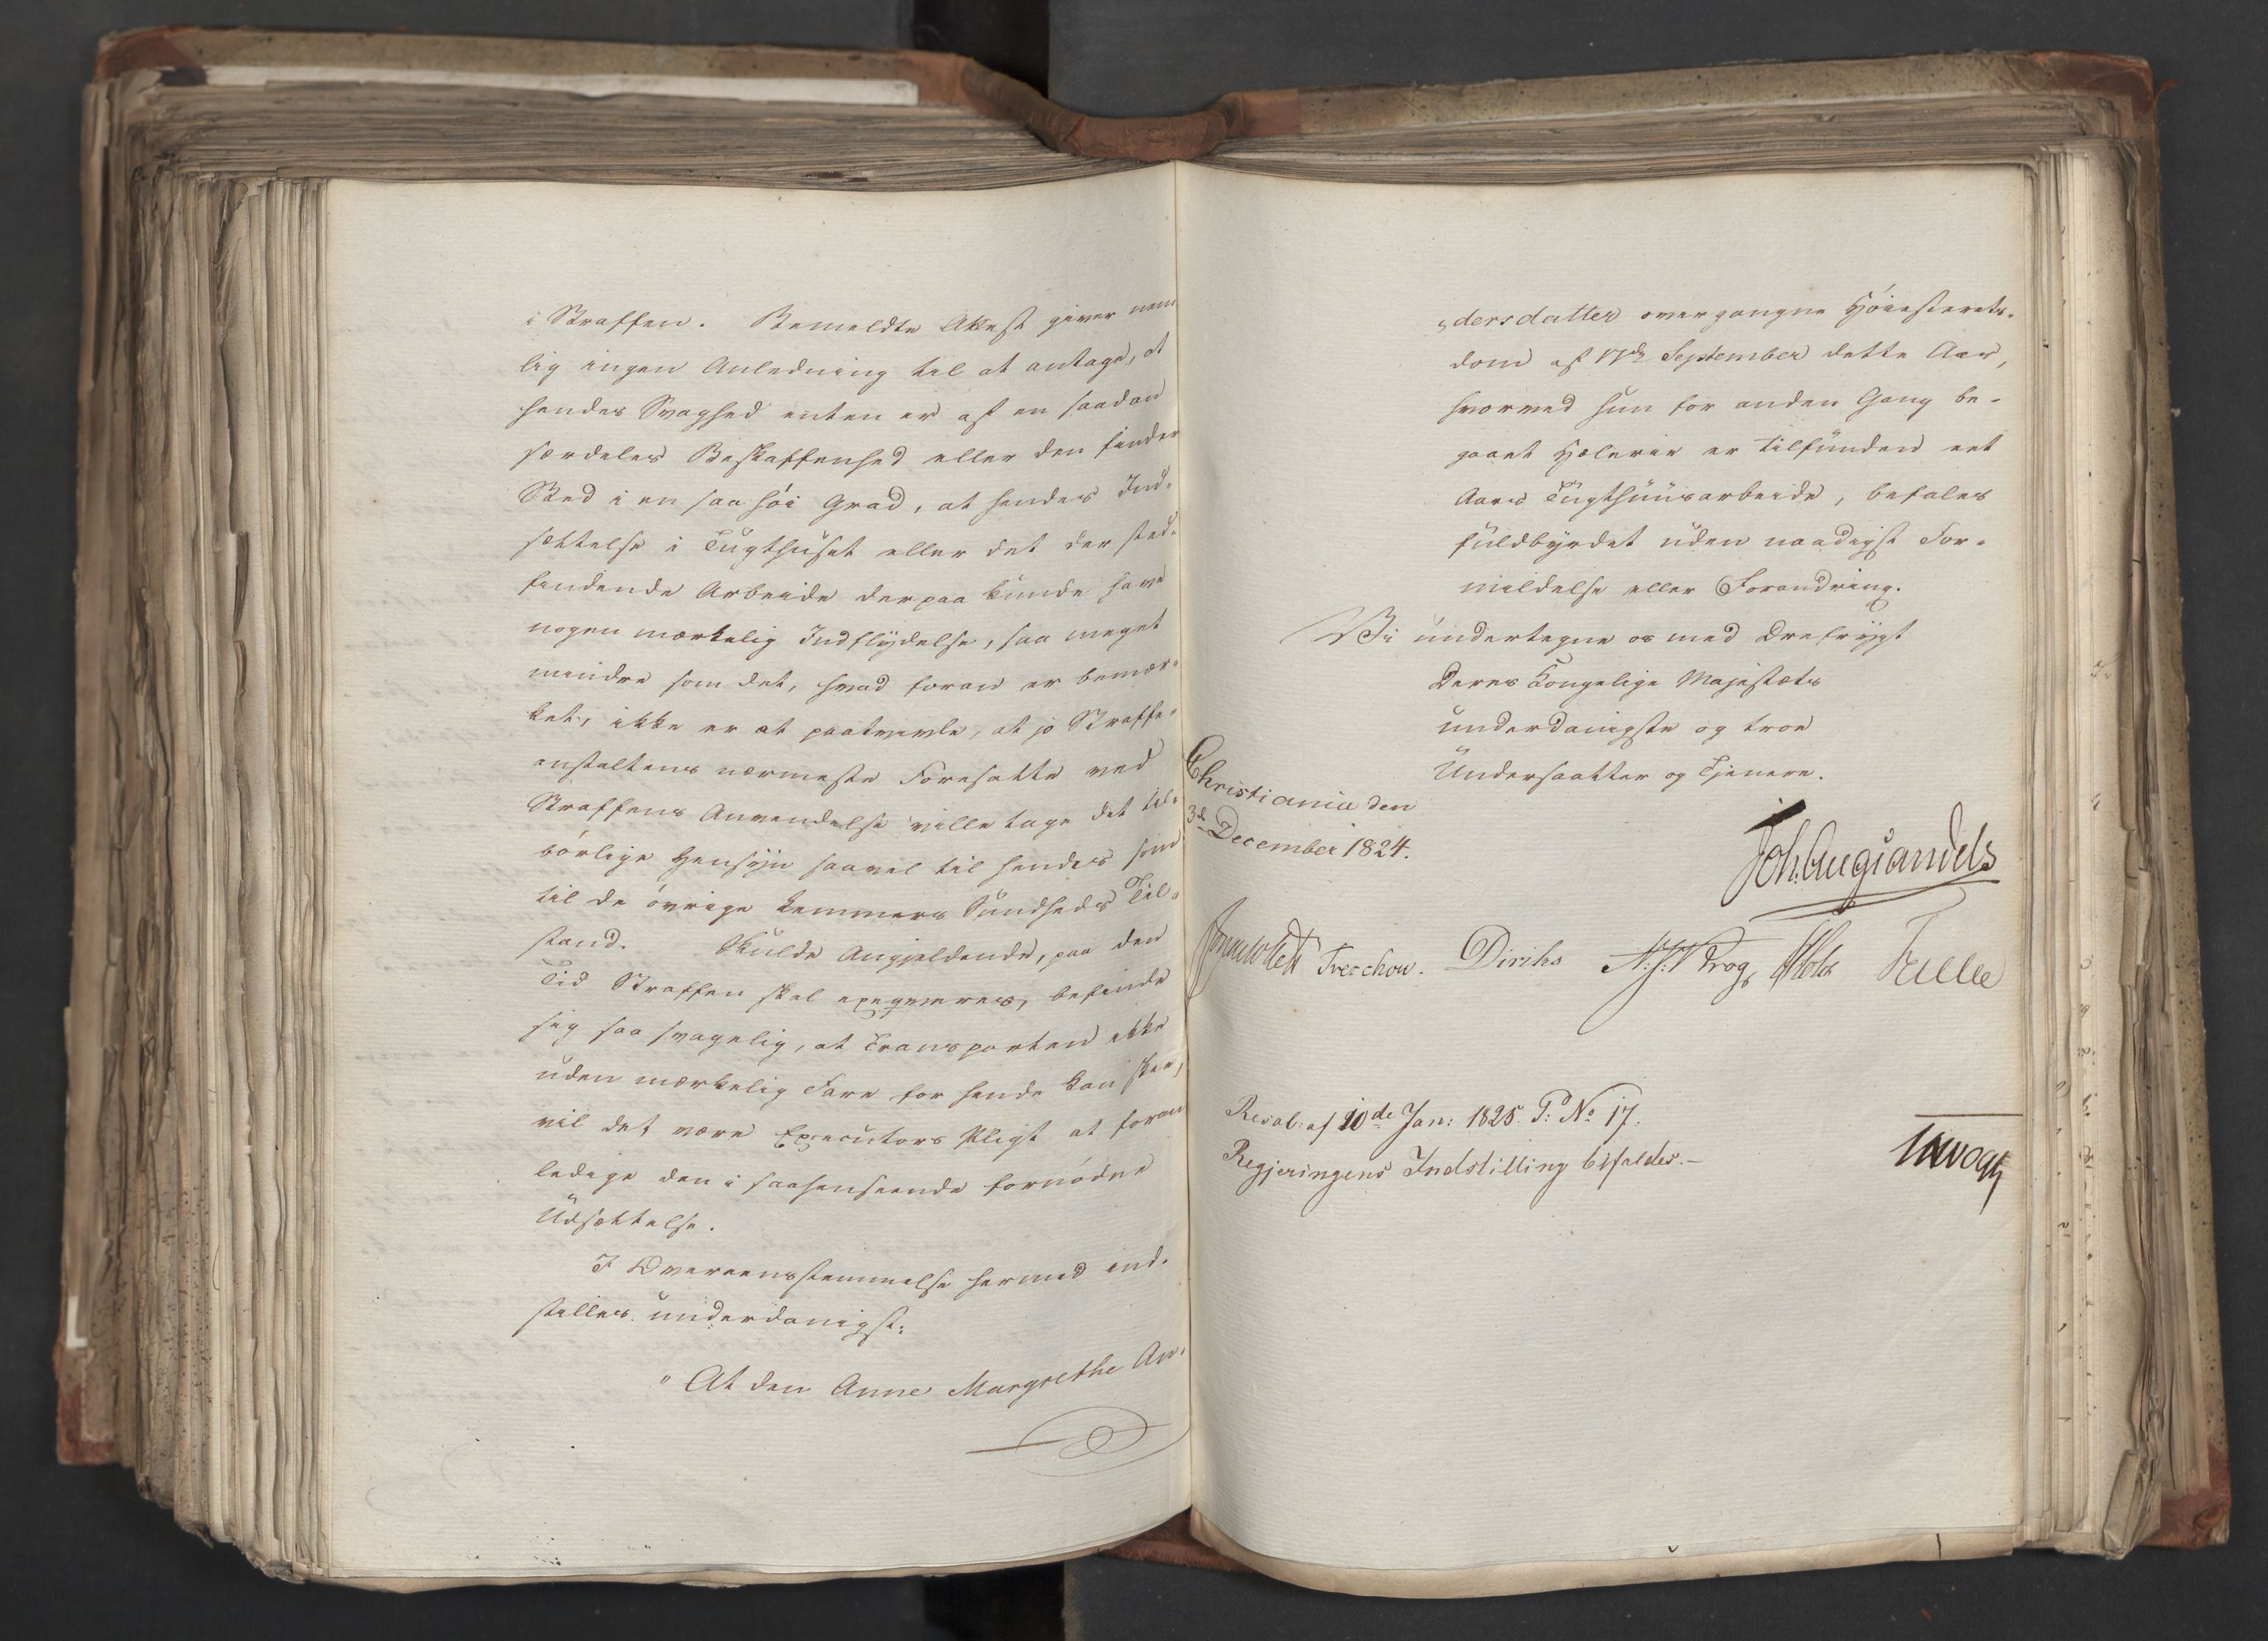 i Straffen. Bemeldte Attest giver nem
lig ingen Anledning til at antage, at
hendes Svaghed enten er af en saadan
særdeles Beskaffenhed eller den finder
Sted i en saa høi Grad, at hendes Ind-
sættelse i Tugthuset eller det der sted-
findende Arbeide derpaa kunde have
nogen mærkelig Indflydelse, saa meget
mindre som det, hvad foran er bemær-
ket, ikke er at paatvivle, at jo Straffe-
anstaltens nærmeste Foresatte ved
Straffens Anvendelse ville tage det til-
børlige Hensyn saavel til hendes som
til de øvrige Lemmers Sundheds Til-
stand. Skulde Angjeldende, paa den
Tid Straffen skal exeqveres, befinde
sig saa svagelig, at Transporten ikke
uden mærkelig Fare for hende kan skee,
vil det være Executors Pligt at foran
ledige den i saahenseende fornødne
Udsættelse.
I Overeensstemmelse hermed ind-
stilles underdanigst:
"At den Anne Margrethe An-
dersdatter overgangne Høiesterets-
dom af 17de September dette Aar,
hvorved hun for anden Gang be-
gaaet Hæleri er tilfunden eet
Aars Tugthuusarbeide, befales
fuldbyrdet uden naadigst For-
mildelse eller Forandring.
Vi undertegne os med Ærefrygt
Deres Kongelige Majestæts
underdanigste og troe
Undersaatter og Tjenere.
Christiania den
3de December 1824.
Joh. Aug. Sandels
Sommerfeldt Treschow. Diriks A: J: W Krog Holst Fasting
Resol: af 10de Jan: 1825. P: No 17.
Regjeringens Indstilling bifaldes.—
Vogt